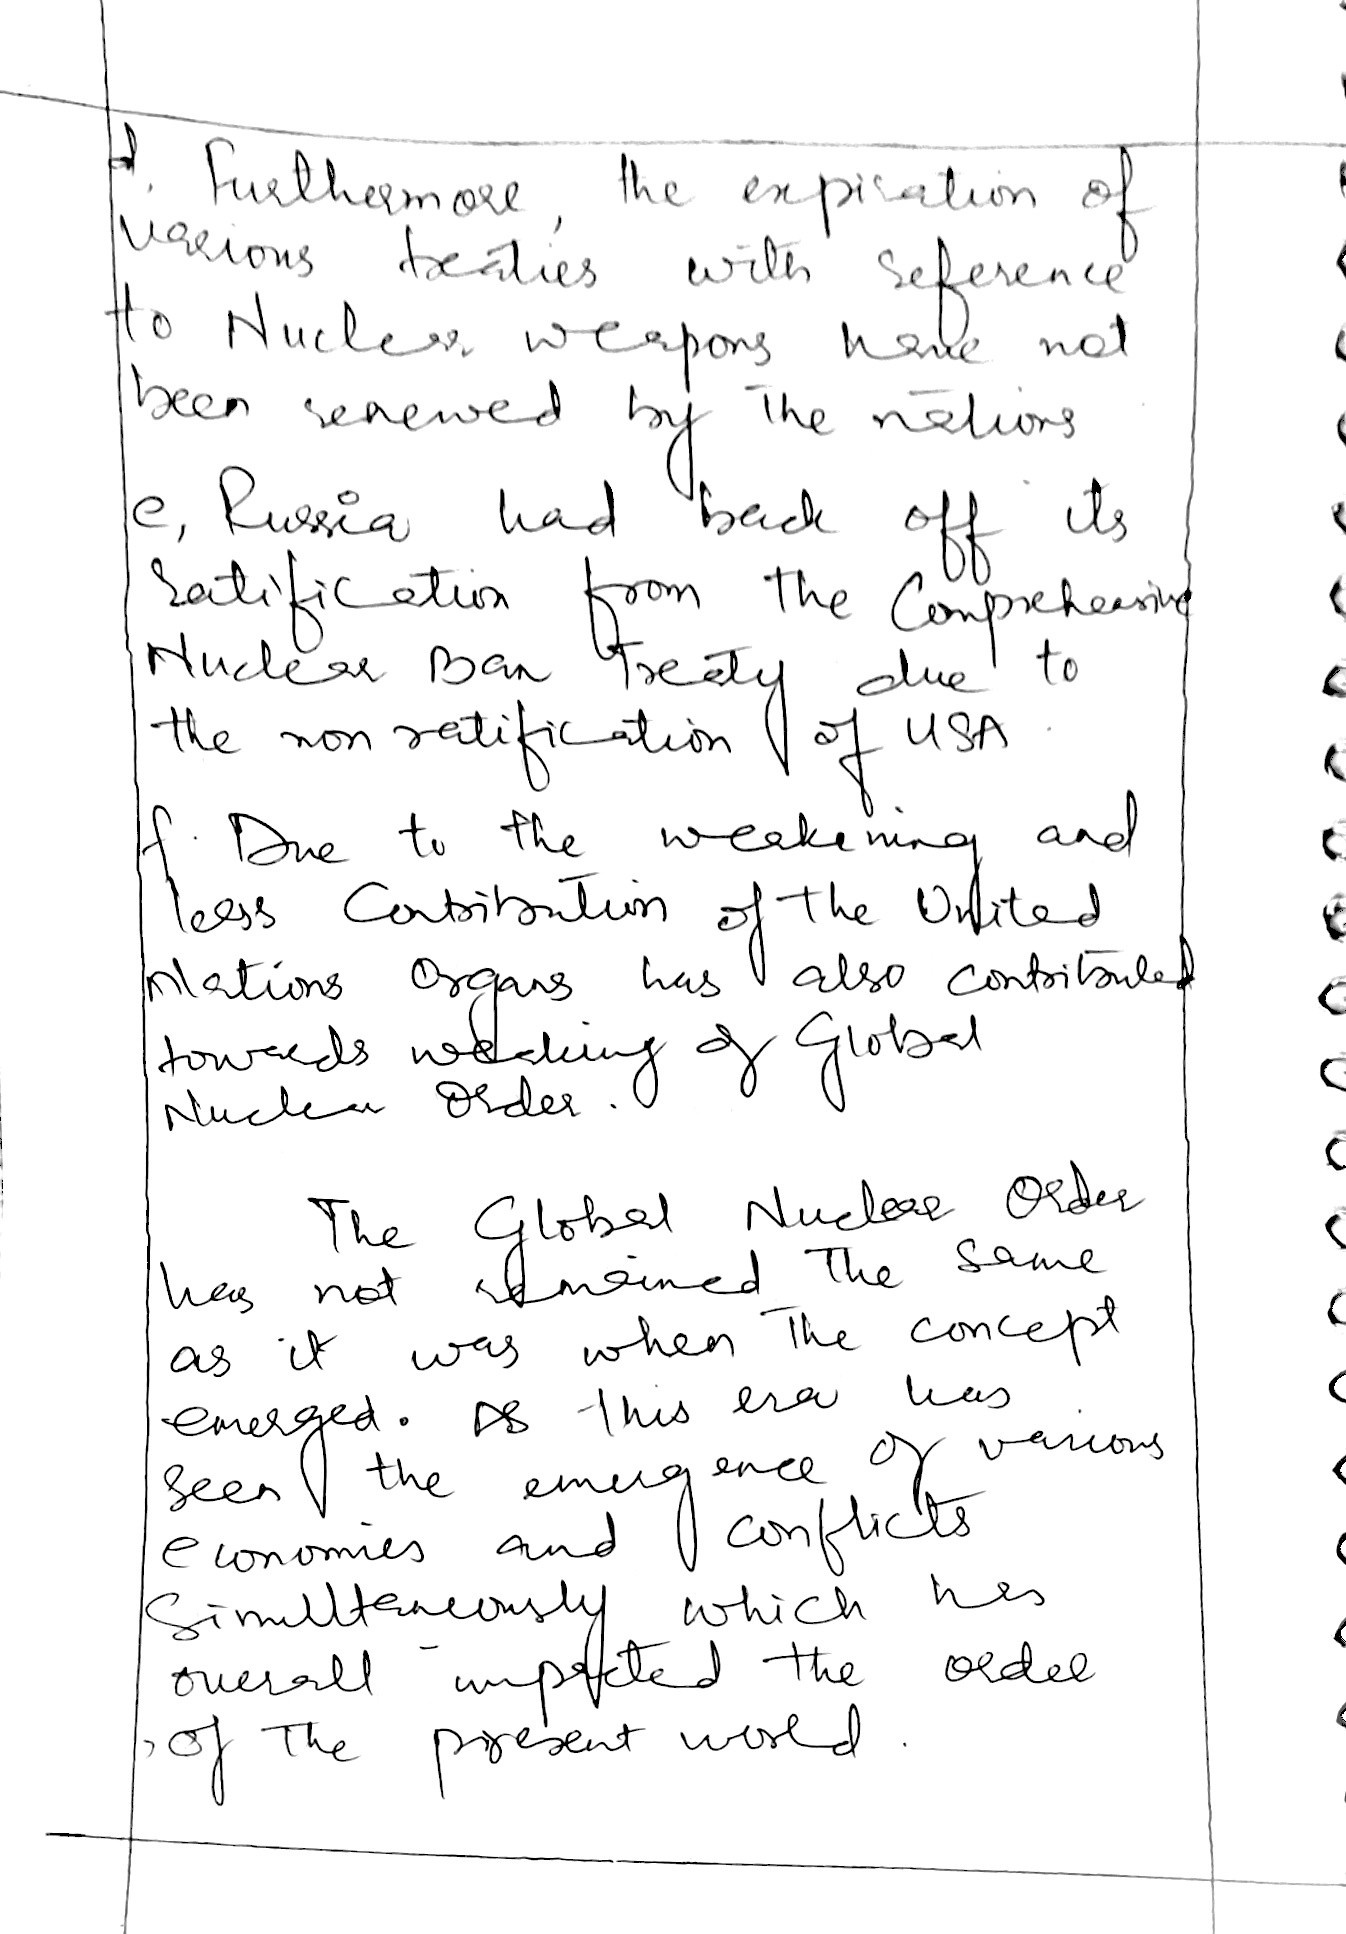 d. Furthermore, the expiration of
various treaties with reference
to Nuclear weapons have not
been renewed by the nations
e, Russia had back off its
ratification from the Comprehensive
Nuclear Ban Treaty due to
the non ratification of USA.
f. Due to the weakening and
less Contribution of the United
Nations Organs has also contributed
towards weaking of Global
Nuclear Order.
The Global Nuclear Order
has not remained the same
as it was when the concept
emerged. As this era has
seen the emergence of various
economies and conflicts
Simulltaneously which has
overall impacted the order
of the present world.